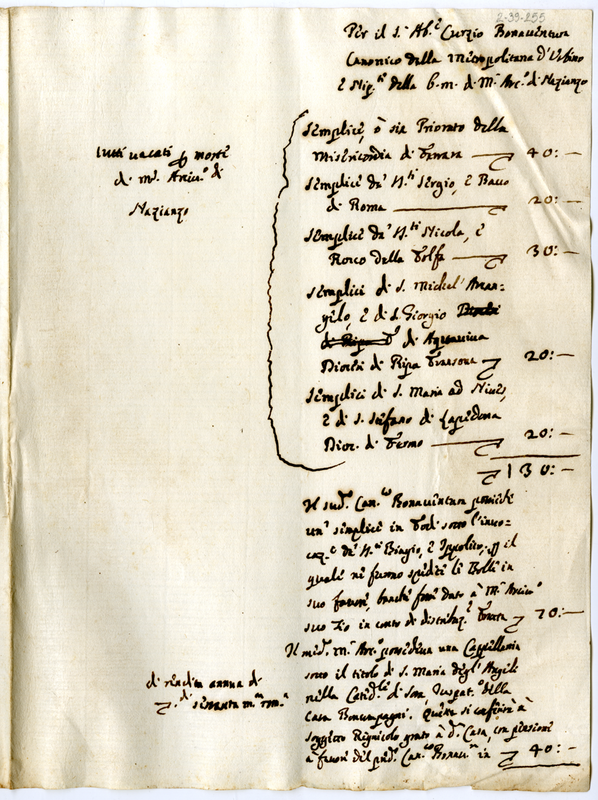 2-39-255
Per il S. Ab.e Curzio Bonaventura
Canonico della Metropolitana d'Urbino
e Nip.te della b.m. di M.r Arc.o di Nazianzo
tutti vacati p morte
di m.r Arciv.o di
Nazianzo
Semplice, ò sia Priorato della
Misericordia di Ferrara 40:—
Semplice de' S.ti Sergio, e Bacco
di Roma 20:—
Semplice de' S.ti Nicola, e
Rocco della Tolfa 30:—
Semplici di S. Michel' Arcan-
gelo, e di S. Giorgio
di Aquaviva
Diocesi di Ripa Transona 20:—
Semplici di S. Maria ad Nives,
e di S. Stefano di Lapedona
Dioc. di Fermo 20:—
130:—
Il sud.o Can.co Bonaventura possiede
un' semplice in Todi sotto l'invo-
caz.e de' S.ti Biagio, e Ippolito, p il
quale ne furono spedite le Bolle in
suo favore, benche fosse dato à M.r Arciv.o
suo Zio in conto di distribuz.e 70:—
Il med.o m.r Arc.o possedeva una Cappellania
sotto il titolo di S. Maria degl' Angeli
nella Catted.le di Sora, Juspat.o della
Casa Boncompagni. Questa si conferirà à
soggetto Regnicolo grato à d.a Casa, con pensione
à favore del pred.o Can.co Bonav.ra in 40:—
di rendita annua di
di sessanta m.ta rom.a